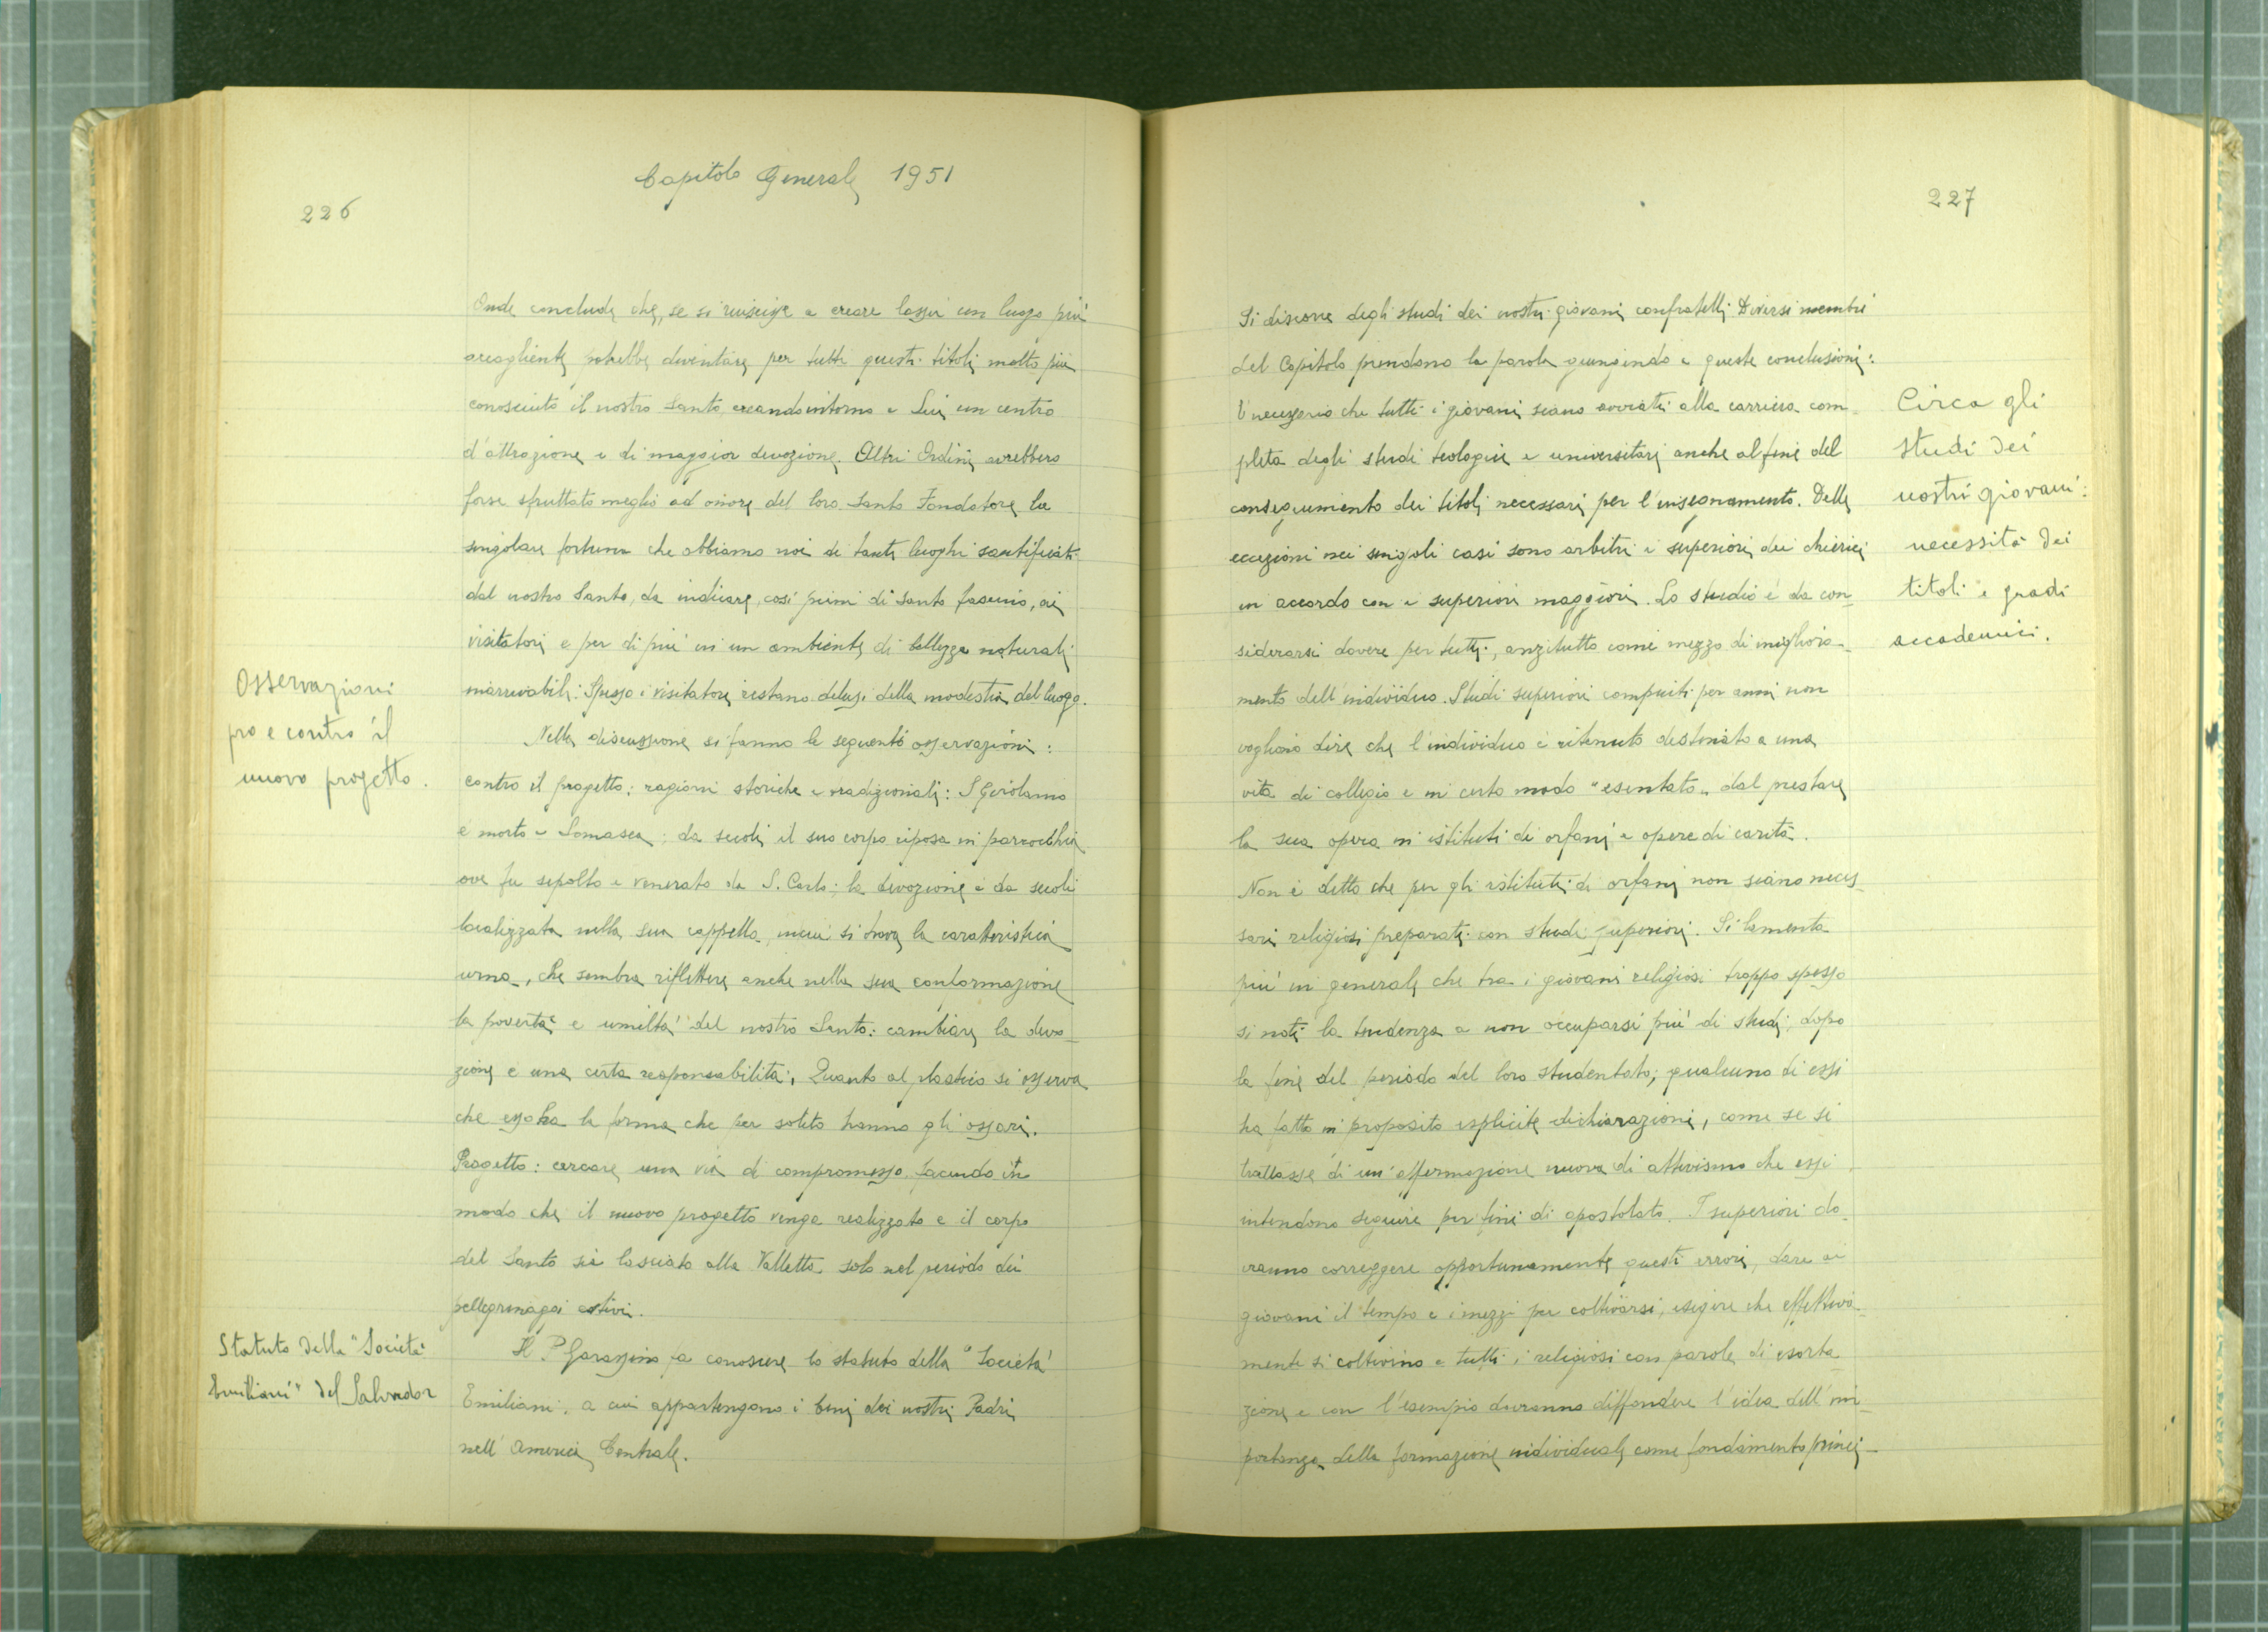 Capitolo Generale 1951
226
Onde conclude che, se si riuscisse a creare lassù un luogo più
accogliente potrebbe diventare per tutti questi titoli molto più
conosciuto il nostro Santo creando intorno a Lui un centro
d'attrazione e di maggior devozione. Altri Ordini avrebbero
forse sfruttato meglio ad onore del loro Santo Fondatore la
singolare fortuna che abbiamo noi di tanti luoghi santificati
dal nostro Santo, da indicare, così pieni di santo fascino, ai
visitatori e per di più in un ambiente di bellezze naturali
mirabili. Spesso i visitatori restano delusi della modestia del luogo.
Osservazioni
pro e contro il
nuovo progetto.
Nella discussione si fanno le seguenti osservazioni:
contro il progetto: ragioni storiche e tradizionali: S. Girolamo
è morto a Somasca; da secoli il suo corpo riposa in parrocchia
ove fu sepolto e venerato da S. Carlo; la devozione è da secoli
localizzata nella sua cappella, in cui si trova la caratteristica
urna, che sembra riflettere anche nella sua conformazione
la povertà e umiltà del nostro Santo: cambiare la devo-
zione è una certa responsabilità. Quanto al plastico si osserva
che esso ha la forma che per solito hanno gli ossari.
Progetto: cercare una via di compromesso facendo in
modo che il nuovo progetto venga realizzato e il corpo
del Santo sia lasciato alla Valletta solo nel periodo dei
pellegrinaggi estivi.
Statuto della "Società
Emiliani" del Salvador
Il P. Garassino fa conoscere lo statuto della "Società
Emiliani, a cui appartengono i beni dei nostri Padri
nell'America Centrale.
227
Si discorre degli studi dei nostri giovani confratelli. Diversi membri
del Capitolo prendono la parola giungendo a queste conclusioni:
È necessario che tutti i giovani siano avviati alla carriera com-
pleta degli studi teologici e universitari anche al fine del
conseguimento dei titoli necessari per l'insegnamento. Delle
eccezioni nei singoli casi sono arbitri i superiori dei chierici
in accordo con i superiori maggiori. Lo studio è da con-
siderarsi dovere per tutti, anzitutto come mezzo di migliora-
mento dell'individuo. Studi superiori compiuti per anni non
vogliono dire che l'individuo è ritenuto destinato a una
vita di collegio e in certo modo "esentato" dal prestare
la sua opera in istituti di orfani e opere di carità.
Non è detto che per gli istituti di orfani non siano neces-
sari religiosi preparati con studi superiori. Si lamenta
più in generale che tra i giovani religiosi troppo spesso
si noti la tendenza a non occuparsi più di studi, dopo
la fine del periodo del loro studentato; qualcuno di essi
ha fatto in proposito esplicite dichiarazioni, come se si
trattasse di un'affermazione nuova di attivismo che essi
intendono seguire per fini di apostolato. I superiori do-
vranno correggere opportunamente questi errori, dare ai
giovani il tempo e i mezzi per coltivarsi, esigere che effettiva-
mente si coltivino e tutti i religiosi con parole di esorta-
zione e con l'esempio dovranno diffondere l'idea dell'im-
portanza della formazione individuale come fondamento princi-
Circa gli
studi dei
nostri giovani:
necessità dei
titoli e gradi
accademici.